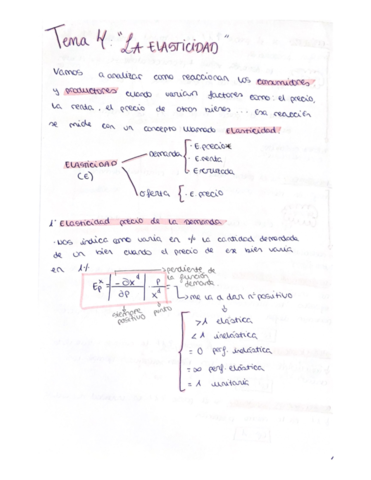 Tema 4: "LA ELASTICIDAD"
Vamos a analizar como reaccionan los consumidores
y productores cuando varían factores como: el precio,
la renta, el precio de otros bienes... Esa reacción
se mide con un concepto llamado elasticidad
ELASTICIDAD (E)
Demanda { · E. precio
· E. renta
· E. cruzada
Oferta { · E. precio
1. Elasticidad precio de la demanda
· Nos indica como varía en % la cantidad demandada
de un bien cuando el precio de ese bien varía
en 1%
pendiente de la función demanda
E_p^x = | -∂x^d / ∂p · p / x^d | =
siempre positivo
punto
me va a dar nº positivo
> 1 elástica
< 1 inelástica
= 0 perf. inelástica
= ∞ perf. elástica
= 1 unitaria